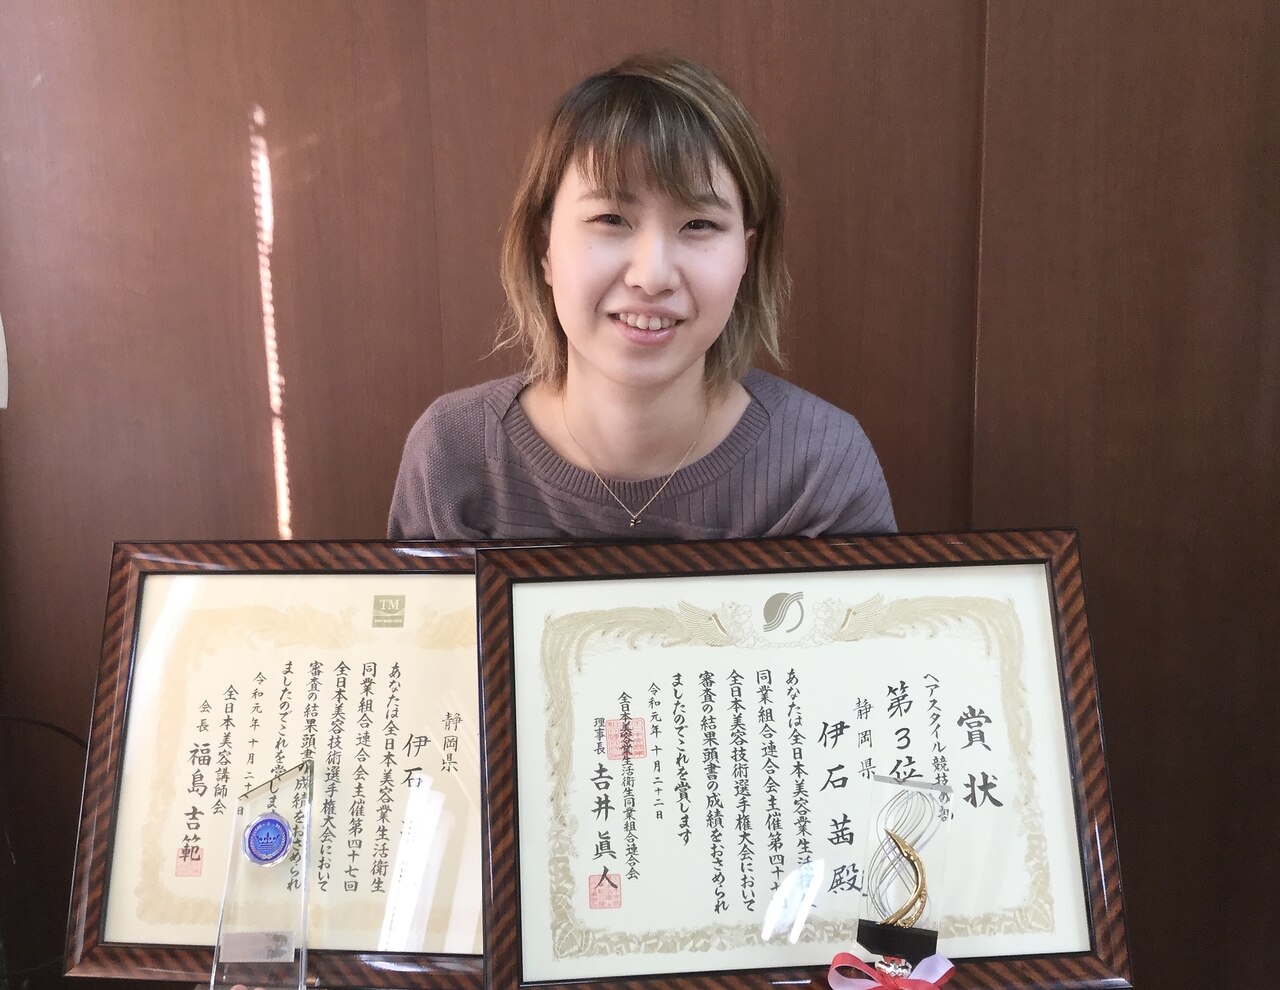 賞状
ヘアスタイル競技の部
第3位
静岡県
伊石茜殿
あなたは全日本美容業生活衛生
同業組合連合会主催第四十七
全日本美容技術選手権大会において
審査の結果頭書の成績をおさめられ
ましたのでこれを賞します
令和元年十月二十二日
全日本美容業生活衛生同業組合連合会
理事長 吉井眞人
TM
静岡県
伊石
あなたは全日本美容業生活衛生
同業組合連合会主催第四十七回
全日本美容技術選手権大会において
審査の結果頭書の成績をおさめられ
ましたのでこれを賞しま
令和元年十月二十
全日本美容講師会
会長 福島吉範